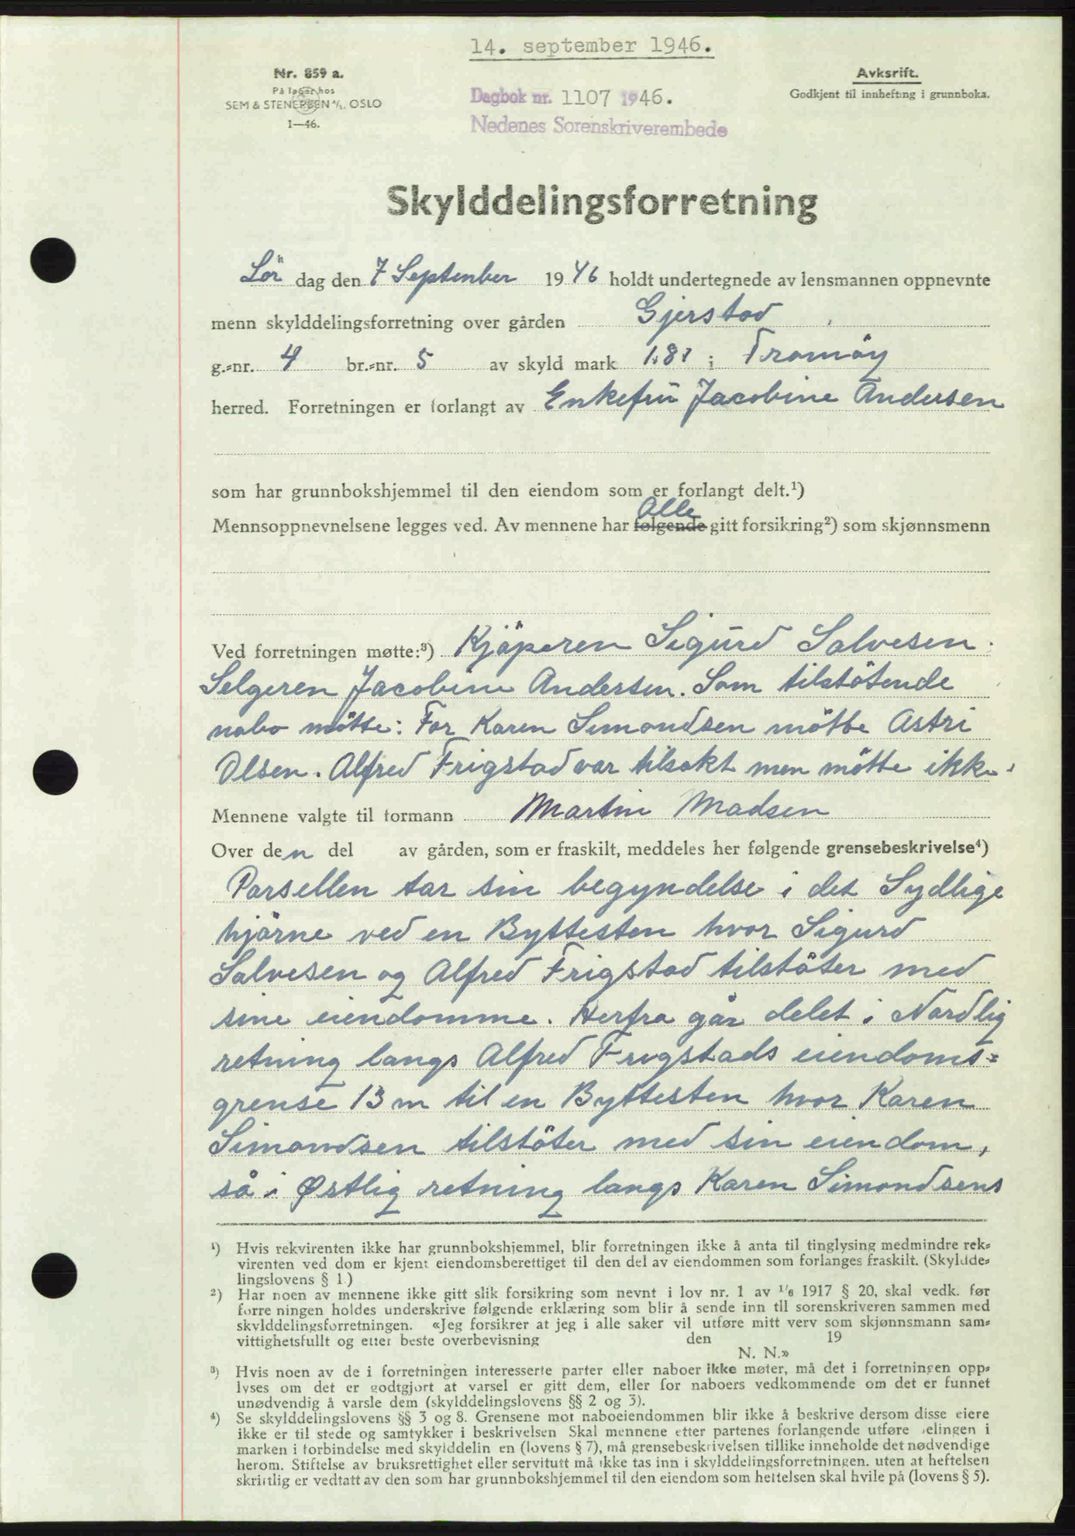 14. september 1946.
Nr. 859 a.
På lager hos
SEM & STENERSEN A/S. OSLO
1—46.
Avksrift.
Godkjent til innhefting i grunnboka.
Dagbok nr. 1107 1946.
Nedenes Sorenskriverembede
Skylddelingsforretning
Lör dag den 7 September 1946 holdt undertegnede av lensmannen oppnevnte
menn skylddelingsforretning over gården Gjerstad
g.-nr. 4 br.-nr. 5 av skyld mark 1.81 i Tromöy
herred. Forretningen er forlangt av Enkefru Jacobine Andersen
som har grunnbokshjemmel til den eiendom som er forlangt delt.¹)
Alle
Mennsoppnevnelsene legges ved. Av mennene har følgende gitt forsikring²) som skjønnsmenn
Ved forretningen møtte:³) Kjöperen Sigurd Salvesen.
Selgeren Jacobine Andersen. Som tilstötende
nabo mötte: For Karen Simondsen mötte Astri
Olsen. Alfred Frigstad var tilsakt men mötte ikke.
Mennene valgte til formann Martin Madsen
Over den del av gården, som er fraskilt, meddeles her følgende grensebeskrivelse⁴)
Parsellen tar sin begyndelse i det Sydlige
hjörne ved en Byttesten hvor Sigurd
Salvesen og Alfred Frigstad tilstöter med
sine eiendomme. Herfra går delet i Nordlig
retning langs Alfred Frigstads eiendoms-
grense 13 m til en Byttesten hvor Karen
Simondsen tilstöter med sin eiendom,
så i Østlig retning langs Karen Simondsens
¹) Hvis rekvirenten ikke har grunnbokshjemmel, blir forretningen ikke å anta til tinglysing medmindre rek-
virenten ved dom er kjent eiendomsberettiget til den del av eiendommen som forlanges fraskilt. (Skyldde-
lingslovens § 1.)
²) Har noen av mennene ikke gitt slik forsikring som nevnt i lov nr. 1 av 1/6 1917 § 20, skal vedk. før
forretningen holdes underskrive følgende erklæring som blir å sende inn til sorenskriveren sammen med
skylddelingsforretningen. «Jeg forsikrer at jeg i alle saker vil utføre mitt verv som skjønnsmann sam-
vittighetsfullt og etter beste overbevisning den 19
N. N.»
³) Hvis noen av de i forretningen interesserte parter eller naboer ikke møter, må det i forretningen opp-
lyses om det er godtgjort at varsel er gitt dem, eller for naboers vedkommende om det er funnet
unødvendig å varsle dem (skylddelingslovens §§ 2 og 3).
⁴) Se skylddelingslovens §§ 3 og 8. Grensene mot naboeiendommen blir ikke å beskrive dersom disse eiere
ikke er til stede og samtykker i beskrivelsen Skal mennene etter partenes forlangende utføre delingen i
marken i forbindelse med skylddelingen (lovens § 7), må grensebeskrivelsen tillike inneholde det nødvendige
herom. Stiftelse av bruksrettighet eller servitutt må ikke tas inn i skylddelingsforretningen. uten at heftelsen
skriftlig er vedtatt av den som har grunnbokshjemmel til den eiendom som heftelsen skal hvile på (lovens § 5).